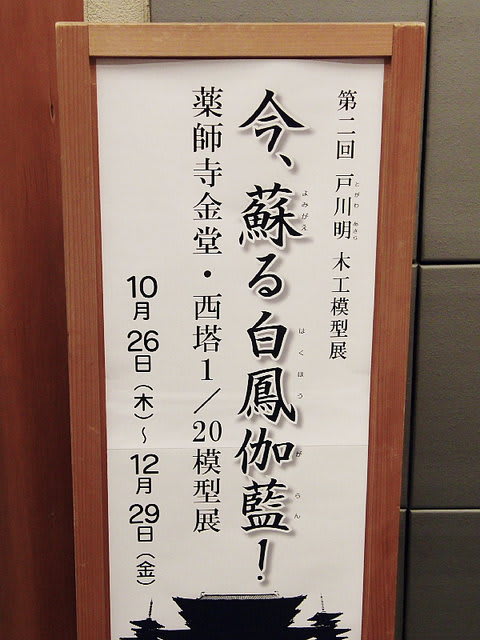 第二回 戸川明 木工模型展
とがわ あきら
今、蘇る白鳳伽藍！
よみがえ はくほう がらん
薬師寺金堂・西塔1／20模型展
10月26日（木）～12月29日（金）